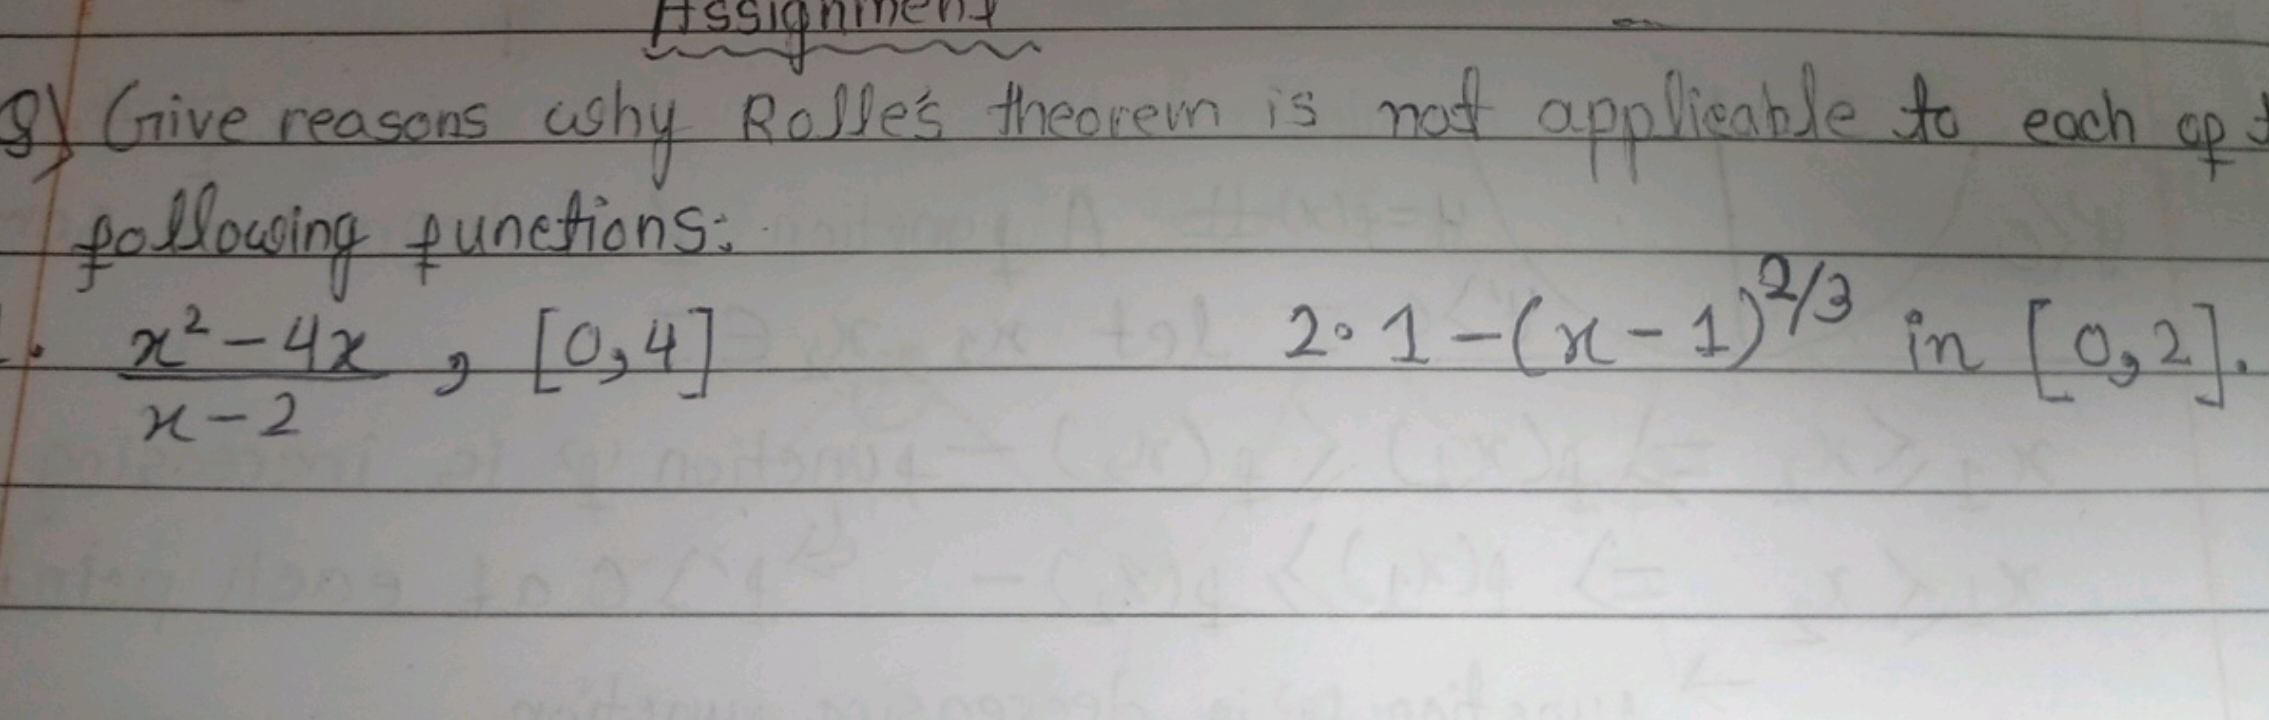 Assignment
Q) Give reasons why Rolle's theorem is not applicable to each of
following functions:
x² - 4x / x - 2 , [0,4] 2. 1 - (x - 1)^2/3 in [0,2].